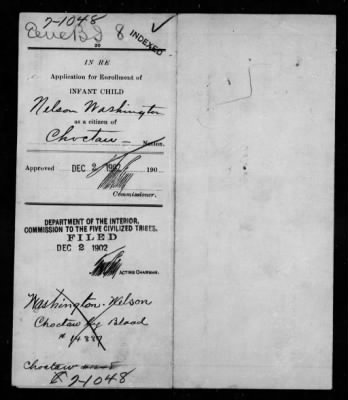 7-1048
8
INDEXED
20
IN RE
Application for Enrollment of
INFANT CHILD
Nelson Washington
as a citizen of
Choctaw Nation.
Approved DEC 2 1902 190
Commissioner.
DEPARTMENT OF THE INTERIOR,
COMMISSION TO THE FIVE CIVILIZED TRIBES.
FILED
DEC 2 1902
ACTING CHAIRMAN.
Washington Nelson
Choctaw by Blood
Choctaw
7-1048